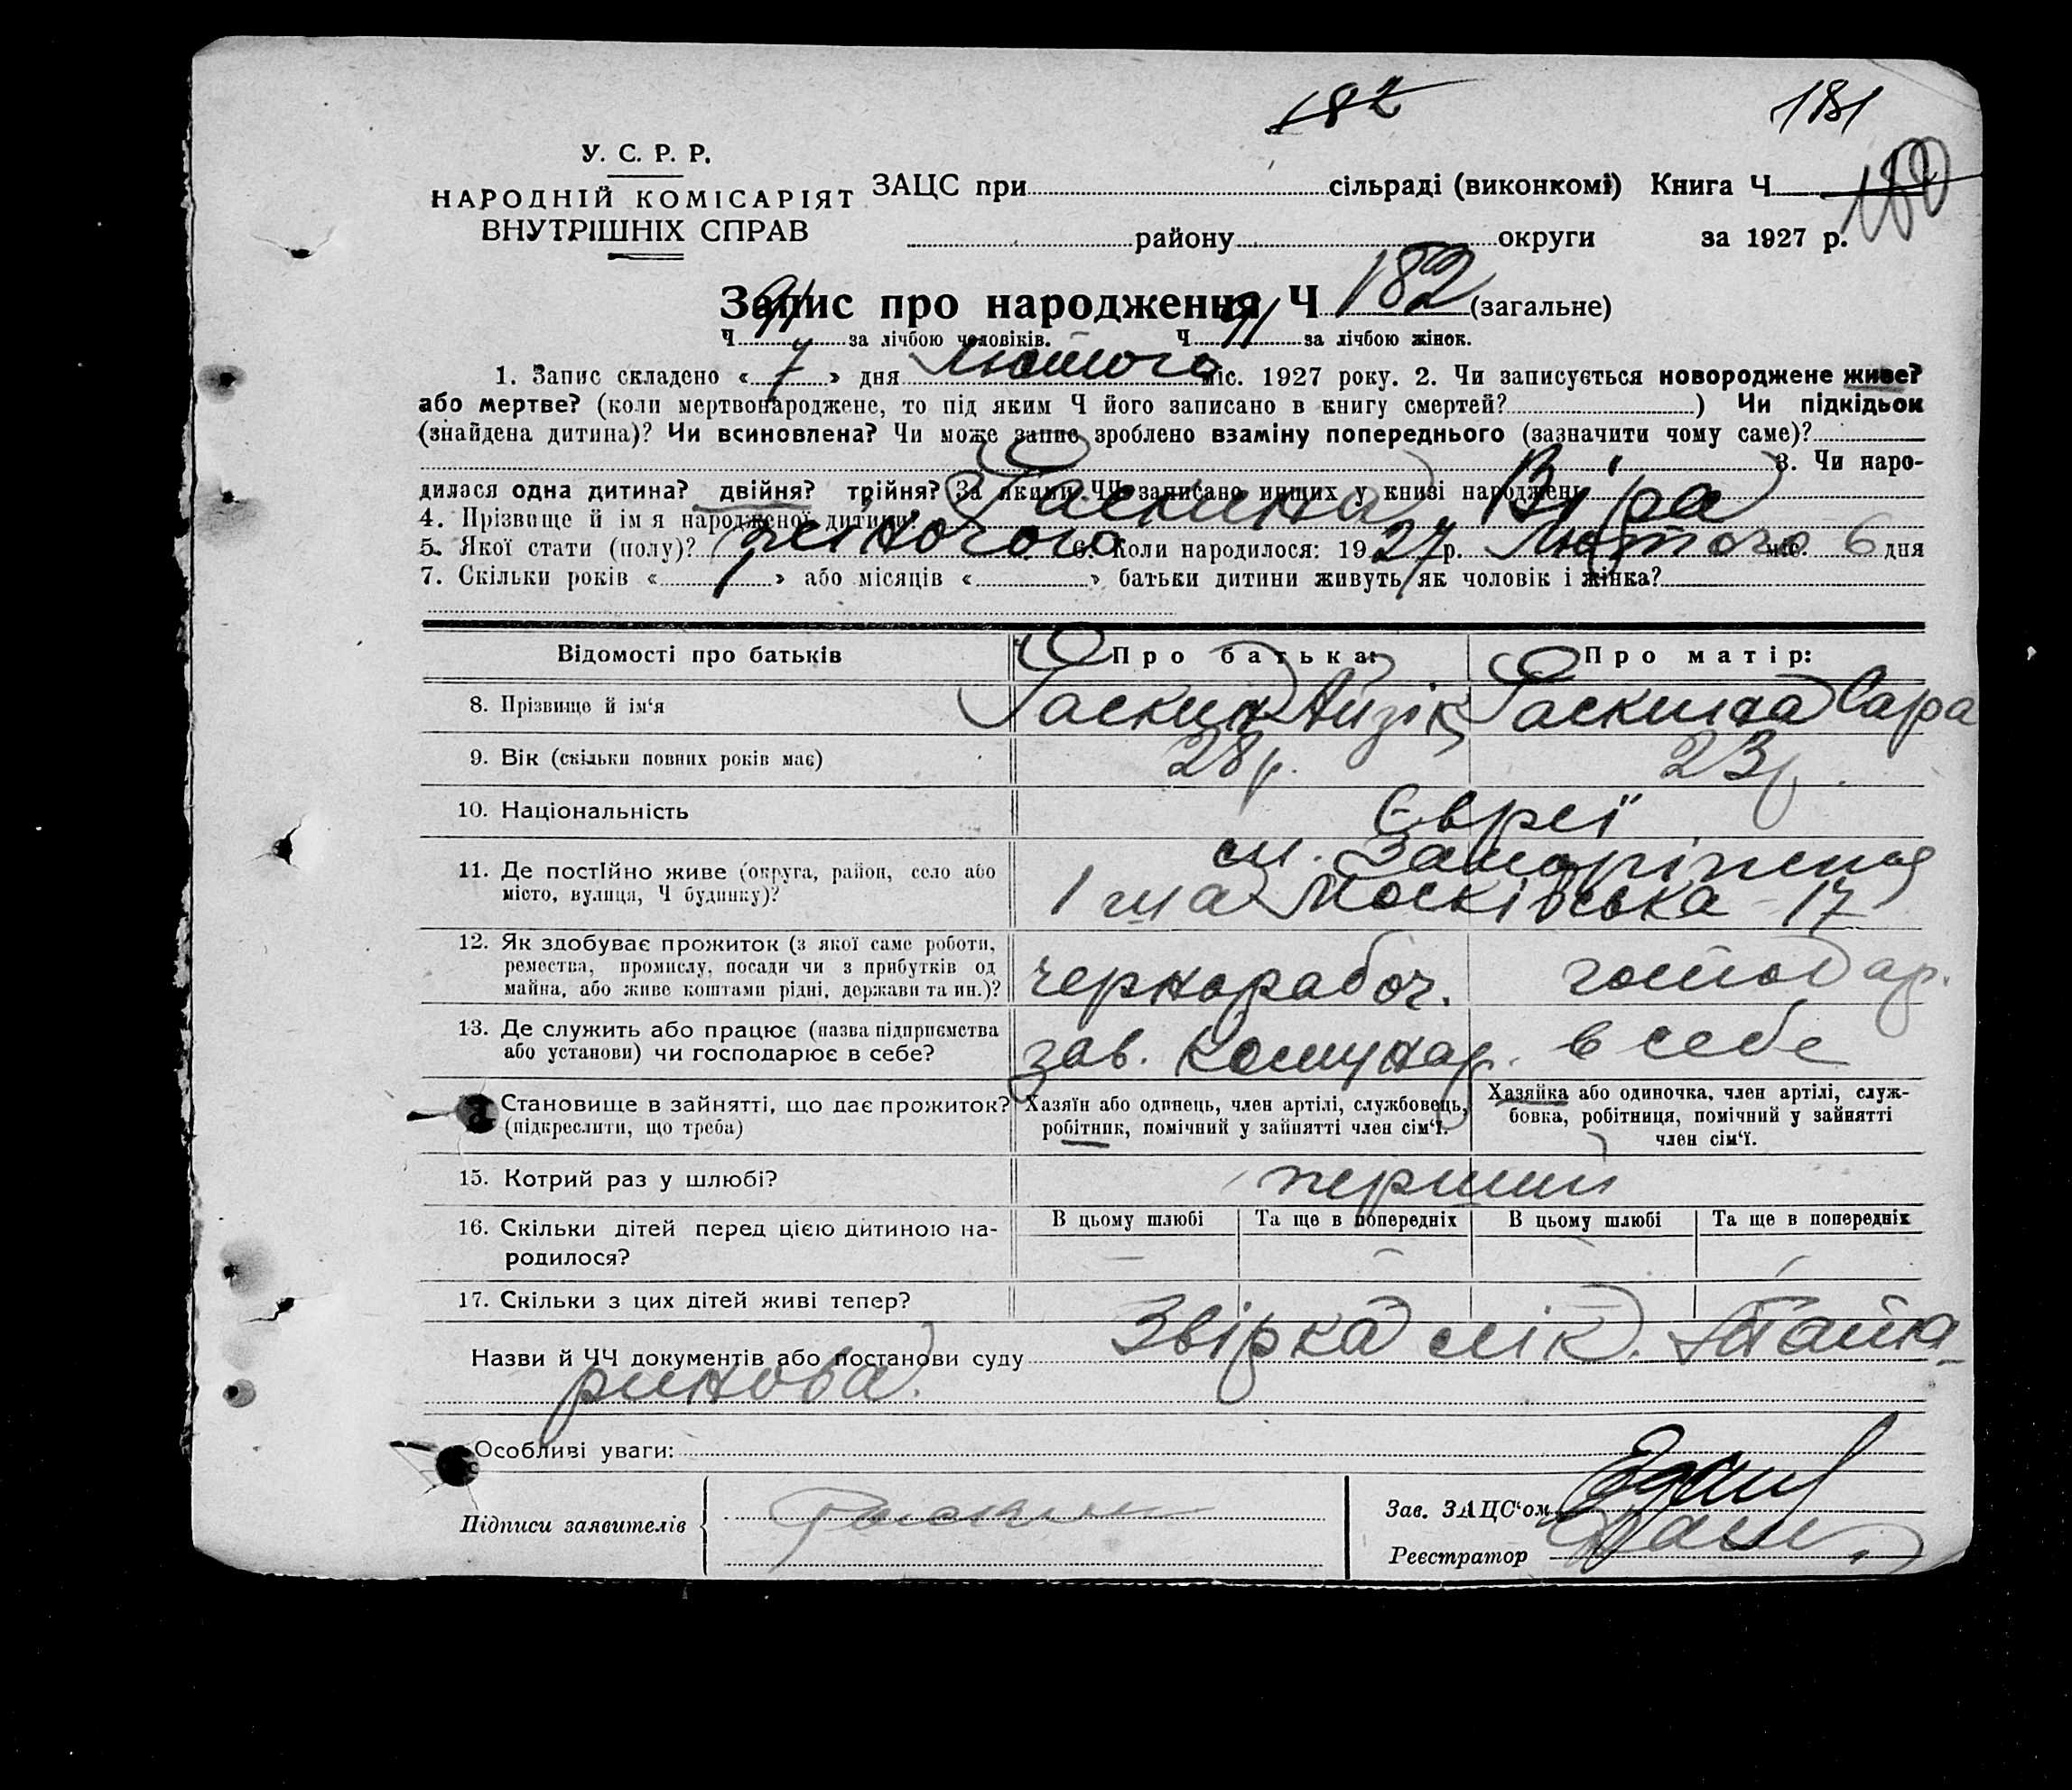 182 181
У. С. Р. Р.
НАРОДНІЙ КОМІСАРІЯТ
ВНУТРІШНІХ СПРАВ
ЗАЦС при сільраді (виконкомі) Книга Ч 180
району округи за 1927 р.
Запис про народження Ч 182 (загальне)
Ч 91 за лічбою чоловіків. Ч 91 за лічбою жінок.
1. Запис складено « 7 » дня Лютого міс. 1927 року. 2. Чи записується новороджене живе?
або мертве? (коли мертвонароджене, то під яким Ч його записано в книгу смертей? ) Чи підкідьок
(знайдена дитина)? Чи всиновлена? Чи може запис зроблено взаміну попереднього (зазначити чому саме)?
3. Чи наро-
дилася одна дитина? двійня? трійня? За якими ЧЧ записано инших у книзі народжень
4. Прізвище й ім'я народженої дитини? Раскина Віра
5. Якої стати (полу)? жіночого 6. Коли народилося: 1927 р. Лютого міс. 6 дня
7. Скільки років « » або місяців « » батьки дитини живуть як чоловік і жінка?
Відомості про батьків Про батька: Про матір:
8. Прізвище й ім'я Раскин Айзік Раскина Сара
9. Вік (скільки повних років має) 28 р. 23 р.
10. Національність Євреї
11. Де постійно живе (округа, район, село або
місто, вулиця, Ч будинку)?
м. Запоріжжя
1 ша Московська 17
12. Як здобуває прожиток (з якої саме роботи,
ремества, промислу, посади чи з прибутків од
майна, або живе коштами рідні, держави та ин.)?
чернорабоч. господар.
13. Де служить або працює (назва підприємства
або установи) чи господарює в себе?
зав. Комунар. в себе
Становище в зайнятті, що дає прожиток?
(підкреслити, що треба)
Хазяїн або одинець, член артілі, службовець,
робітник, помічний у зайнятті член сім'ї.
Хазяйка або одиночка, член артілі, служ-
бовка, робітниця, помічний у зайнятті
член сім'ї.
15. Котрий раз у шлюбі? перший
16. Скільки дітей перед цією дитиною на-
родилося?
В цьому шлюбі Та ще в попередніх В цьому шлюбі Та ще в попередніх
17. Скільки з цих дітей живі тепер?
Назви й ЧЧ документів або постанови суду Звірка лік.
Особливі уваги:
Підписи заявителів Раскин
Зав. ЗАЦС'ом
Реєстратор